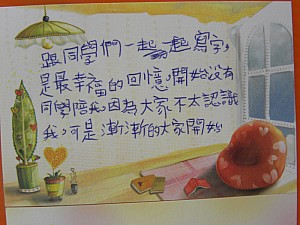 跟同學們一起寫字,
是最幸福的回憶,開始沒有
同學陪我,因為大家不太認識
我,可是漸漸的大家開始